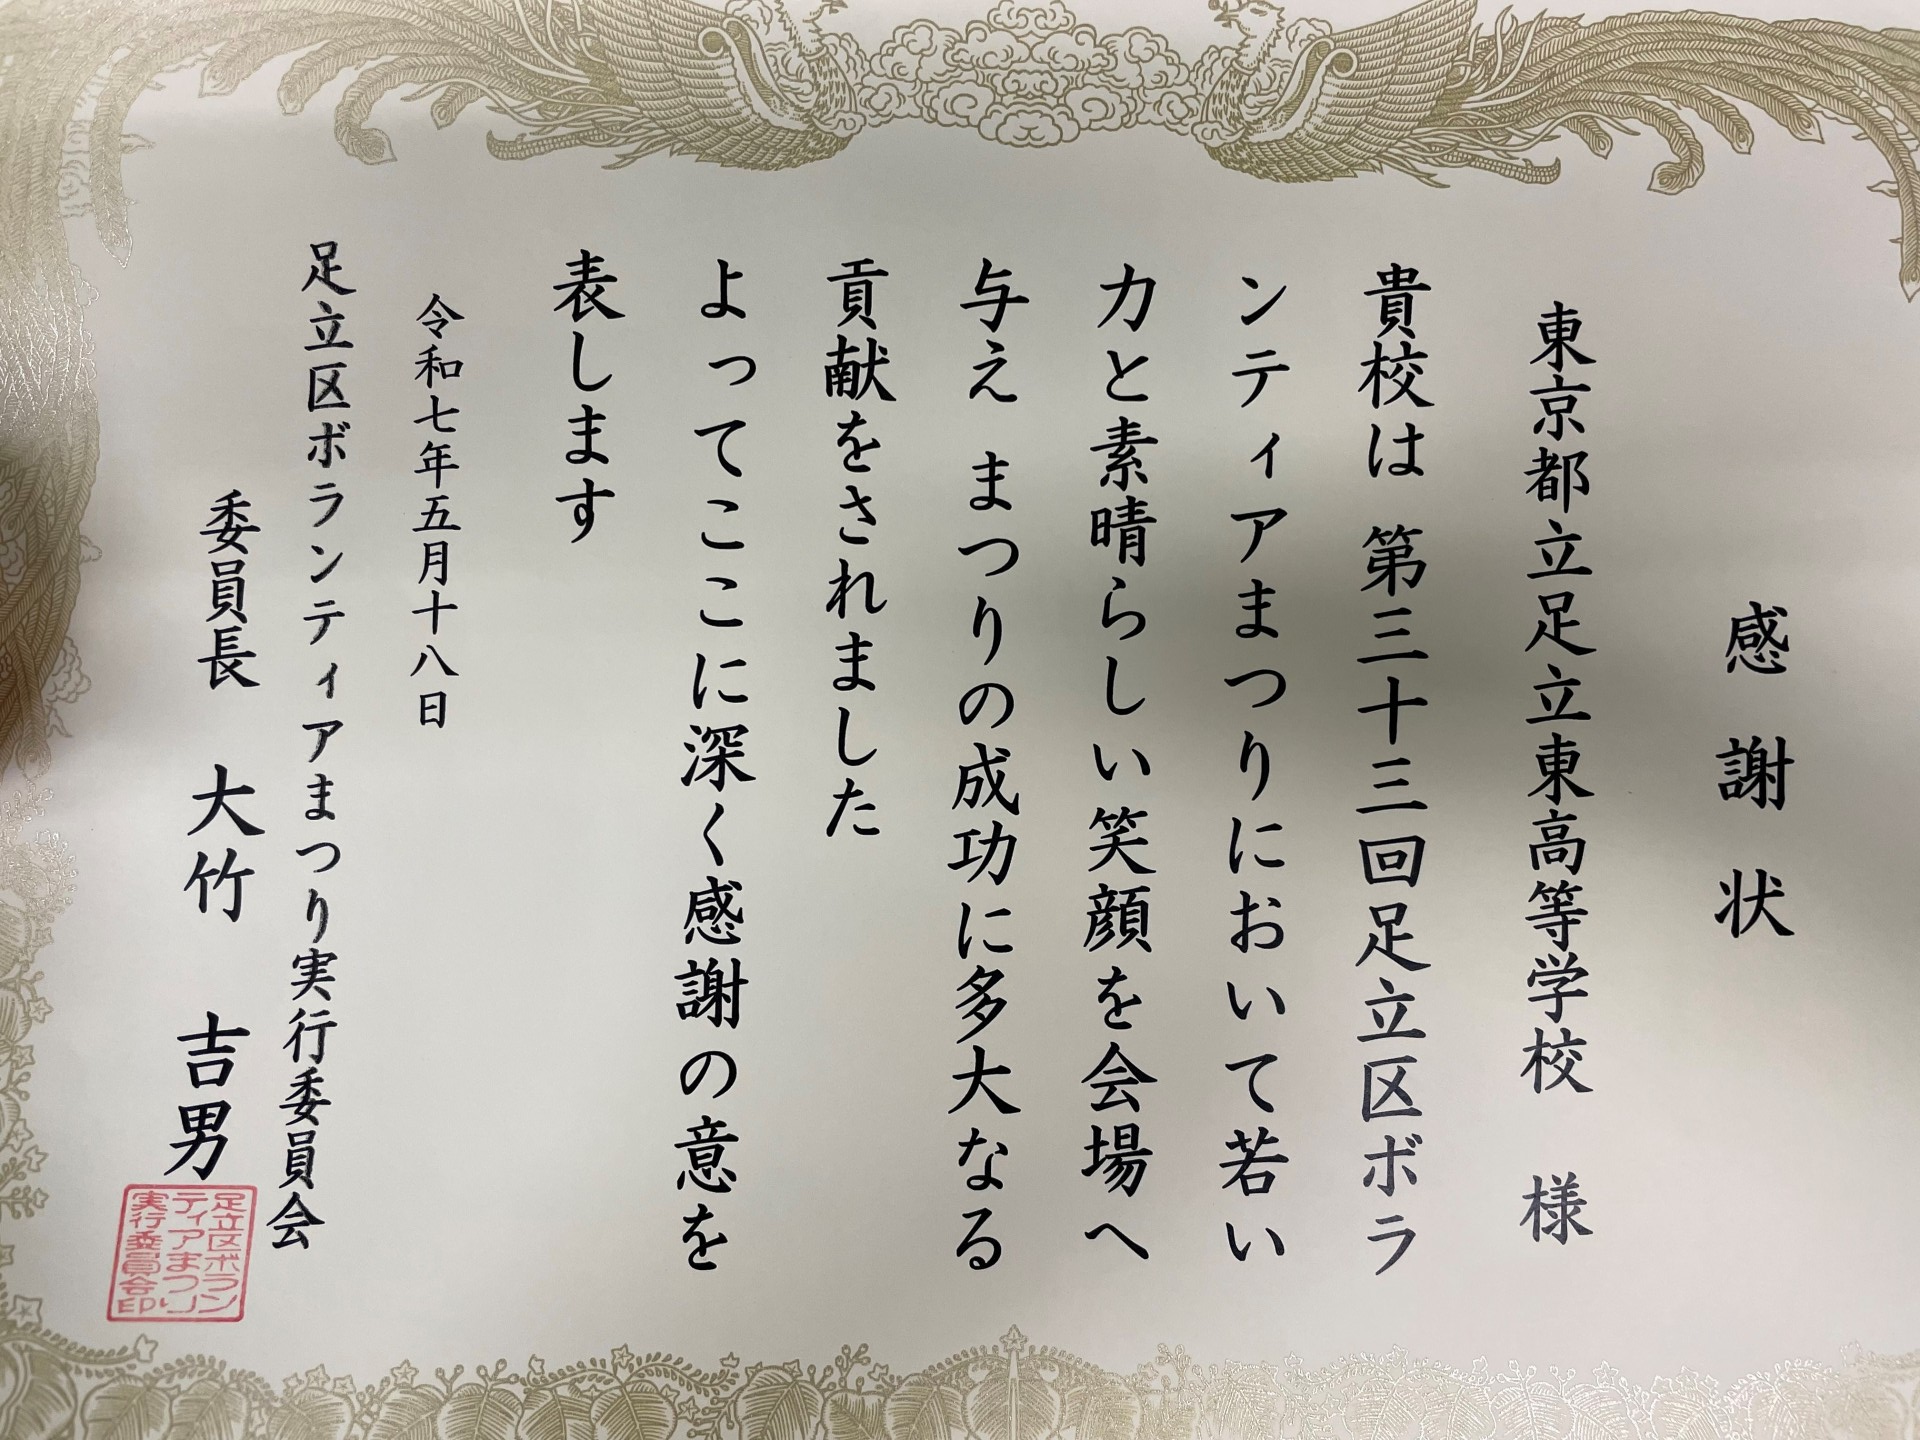 感謝状
東京都立足立東高等学校 様
貴校は 第三十三回足立区ボラ
ンティアまつりにおいて若い
力と素晴らしい笑顔を会場へ
与え まつりの成功に多大なる
貢献をされました
よってここに深く感謝の意を
表します
令和七年五月十八日
足立区ボランティアまつり実行委員会
委員長 大竹 吉男
足立区ボラン
ティアまつり
実行委員会印